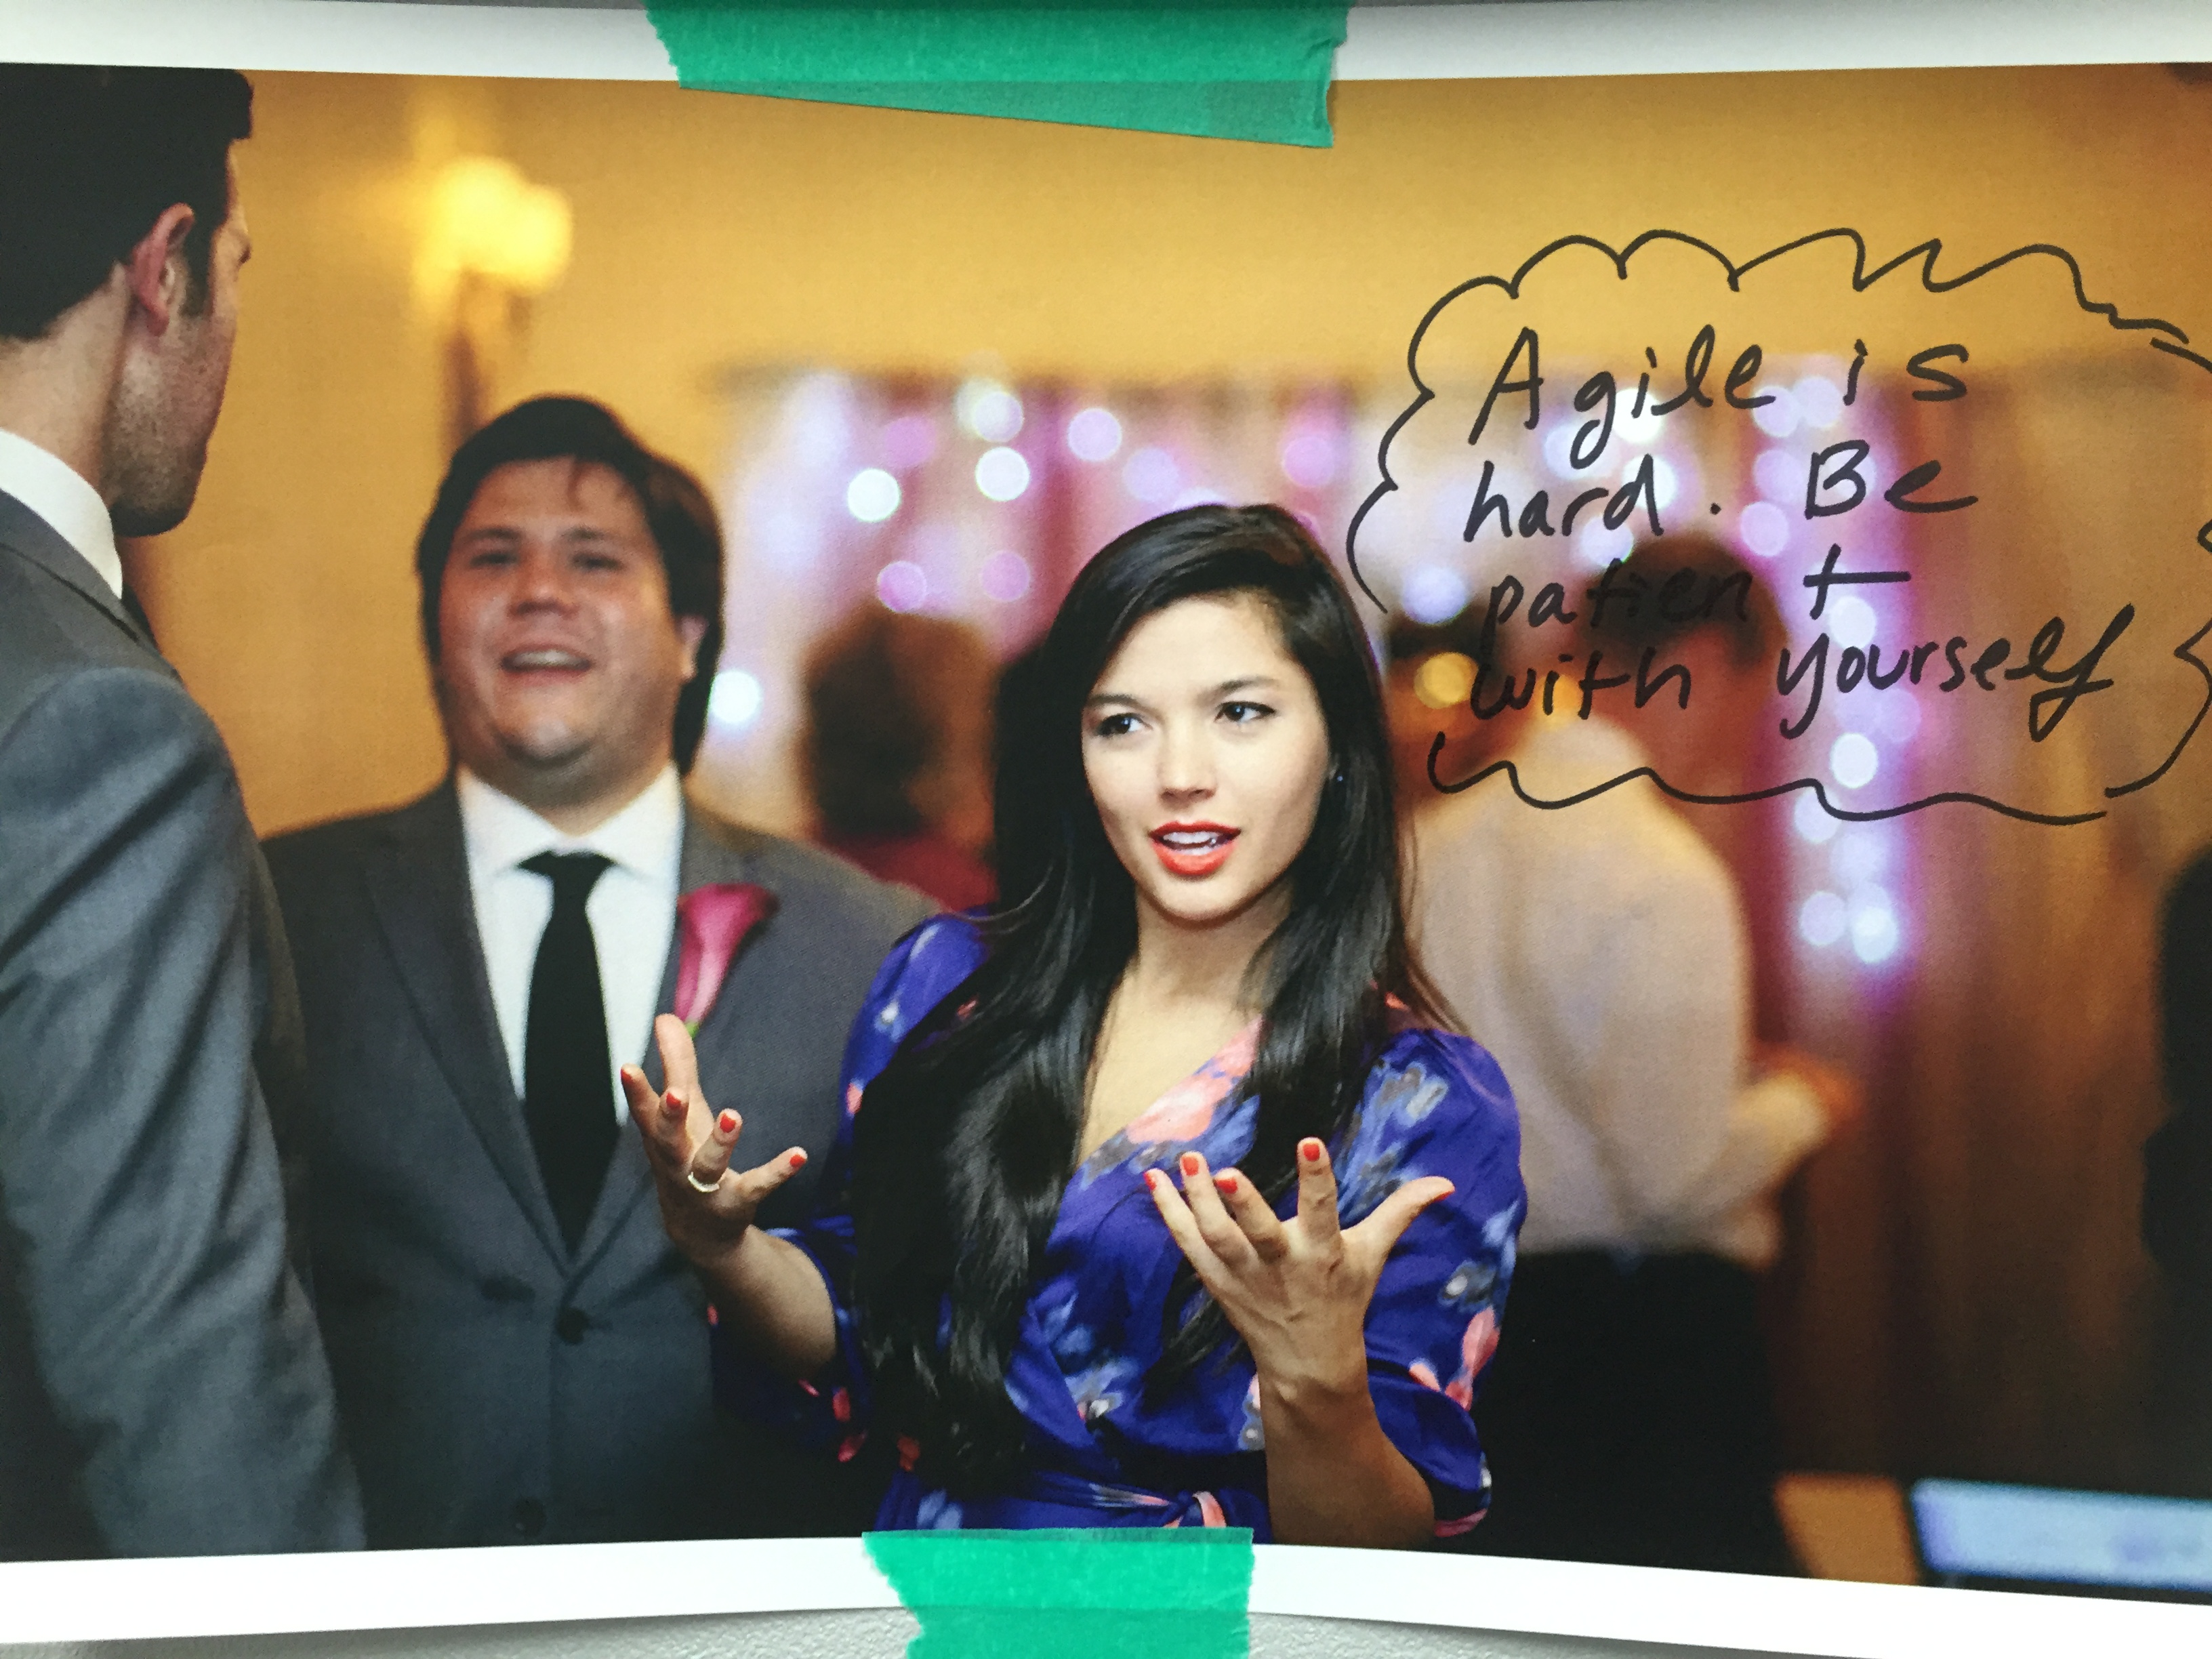 Agile is
hard. Be
patient
with yourself